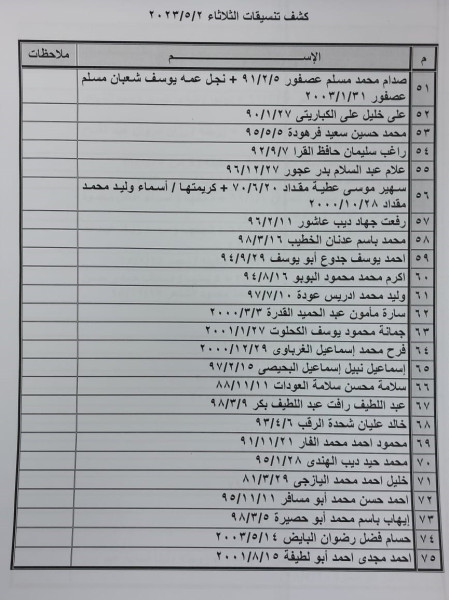 كشف تنسيقات الثلاثاء ٢٠٢٣/٥/٢
م الإســـم ملاحظات
٥١ صدام محمد مسلم عصفور ٩١/٢/٥ + نجل عمه يوسف شعبان مسلم
عصفور ٢٠٠٣/١/٣١
٥٢ على خليل على الكباريتى ٩٠/١/٢٧
٥٣ محمد حسين سعيد فرهودة ٩٥/٥/٥
٥٤ راغب سليمان حافظ القرا ٩٢/٩/٧
٥٥ علام عبد السلام بدر عجور ٩٦/١٢/٢٧
٥٦ سهير موسى عطية مقداد ٧٠/٦/٢٠ + كريمتها / أسماء وليد محمد
مقداد ٢٠٠٠/١٠/٢٨
٥٧ رفعت جهاد ديب عاشور ٩٦/٢/١١
٥٨ محمد باسم عدنان الخطيب ٩٨/٣/١٦
٥٩ احمد يوسف جدوع أبو يوسف ٩٤/٩/٢٩
٦٠ اكرم محمد محمود البوبو ٩٤/٨/١٦
٦١ وليد محمد ادريس عودة ٩٧/٧/١٠
٦٢ سارة مأمون عبد الحميد القدرة ٢٠٠٠/٣/٣
٦٣ جمانة محمود يوسف الكحلوت ٢٠٠١/١/٢٧
٦٤ فرح محمد إسماعيل الغرباوى ٢٠٠٠/١٢/٢٩
٦٥ إسماعيل نبيل إسماعيل البحيصى ٩٧/٢/١٥
٦٦ سلامة محسن سلامة العودات ٨٨/١١/١١
٦٧ عبد اللطيف رافت عبد اللطيف بكر ٩٨/٣/٩
٦٨ خالد عليان شحدة الرقب ٩٣/٤/٦
٦٩ محمود احمد محمد الفار ٩١/١١/٢١
٧٠ محمد حيد ديب الهندى ٩٥/١/٢٨
٧١ خليل احمد محمد اليازجى ٨١/٣/٢٩
٧٢ احمد حسن محمد أبو مسافر ٩٥/١١/١١
٧٣ إيهاب باسم محمد أبو حصيرة ٩٨/٣/٥
٧٤ حسام فضل رضوان البايض ٢٠٠٣/٥/١٤
٧٥ احمد مجدى احمد أبو لطيفة ٢٠٠١/٨/١٥